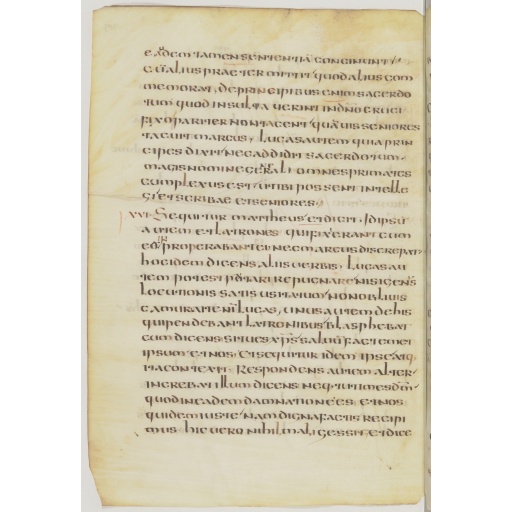 eadem tamen sententia concinunt
cu alius praetermittit quod alius com
memorat, de principibus enim sacerdo
tum quod insultaverint in dno cruci
fixo pariter non tacent quavis seniores
tacuit marcus, lucas autem quia prin
cipes dixit nec addidit sacerdotum
magis nomine generali omnes primates
complexus est ut ibi possent intelle
gi et scribae et seniores
XVI Sequitur mattheus et dicit Idipsu
autem et latrones qui fixi erant cum
eo properabant ei nec marcus discrepat
hoc idem dicens aliis verbis, lucas au
tem potest putari repugnare nisi genus
locutionis satis usitatum non obliuis
camur ait eni lucas, unus autem de his
qui pendebant latronibus blasphebat
eum dicens si tu es xps saluu fac temet
ipsum et nos et sequitur idem ipse atq
ita contexit Respondens autem alter
increbat illum dicens neq tu times dm
quod in eadem damnatione es et nos
quidem iuste nam digna factis recipi
mus hic vero nihil mali gessit et dice